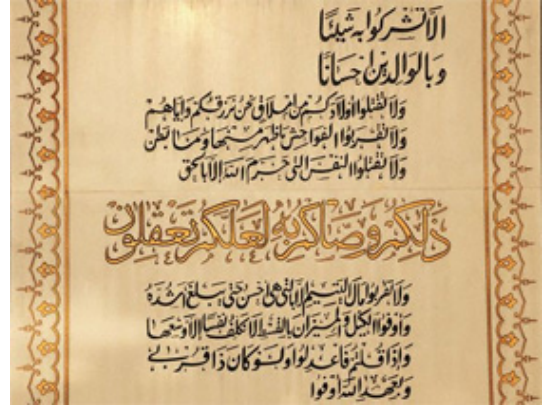 الا تشركوا به شيئا
وبالوالدين احسانا
ولا تقتلوا اولادكم من املاق نحن نرزقكم واياهم
ولا تقربوا الفواحش ما ظهر منها وما بطن
ولا تقتلوا النفس التى حرم الله الا بالحق
ذلكم وصاكم به لعلكم تعقلون
ولا تقربوا مال اليتيم الا بالتى هى احسن حتى يبلغ اشده
واوفوا الكيل والميزان بالقسط لا نكلف نفسا الا وسعها
واذا قلتم فاعدلوا ولو كان ذا قربى
وبعهد الله اوفوا